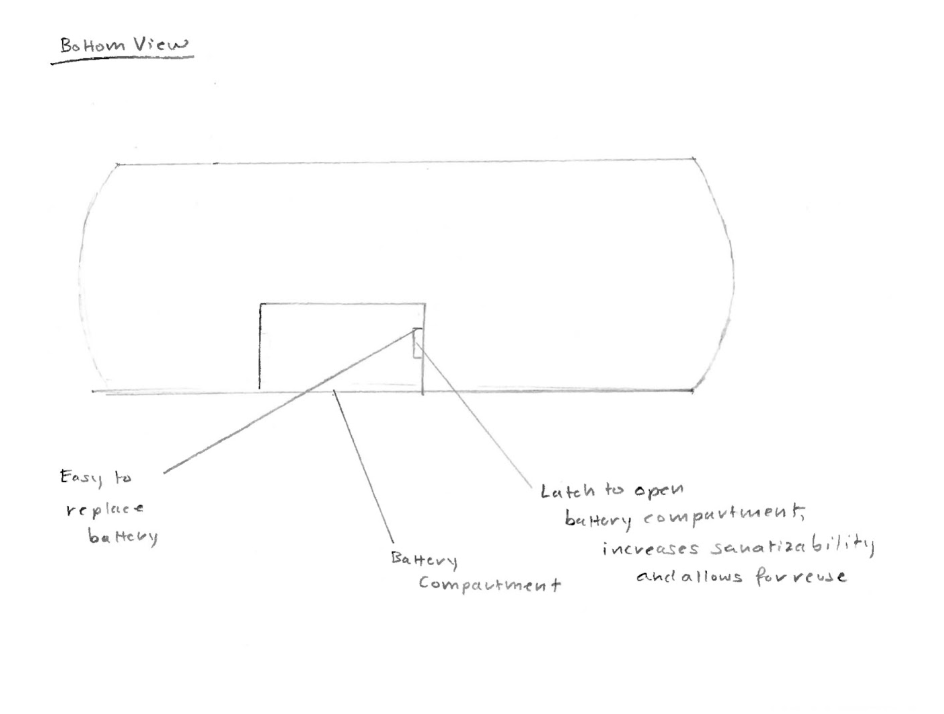 Bottom View
Easy to
replace
battery
Battery
Compartment
Latch to open
battery compartment,
increases sanatizability
and allows for reuse